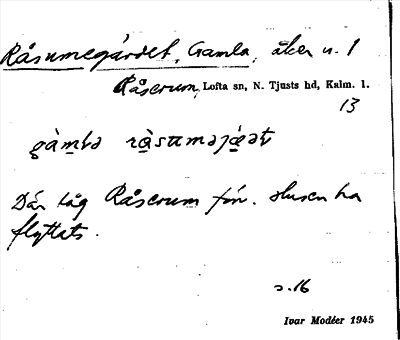 Råsumegärdet, Gamla, åker n. 1
Råserum, Lofta sn, N. Tjusts hd, Kalm. l.
13
gàmḷa rå̀sumǝjǽǝt
Där låg Råserum förr. Husen ha
flyttats.
s. 16
Ivar Modéer 1945